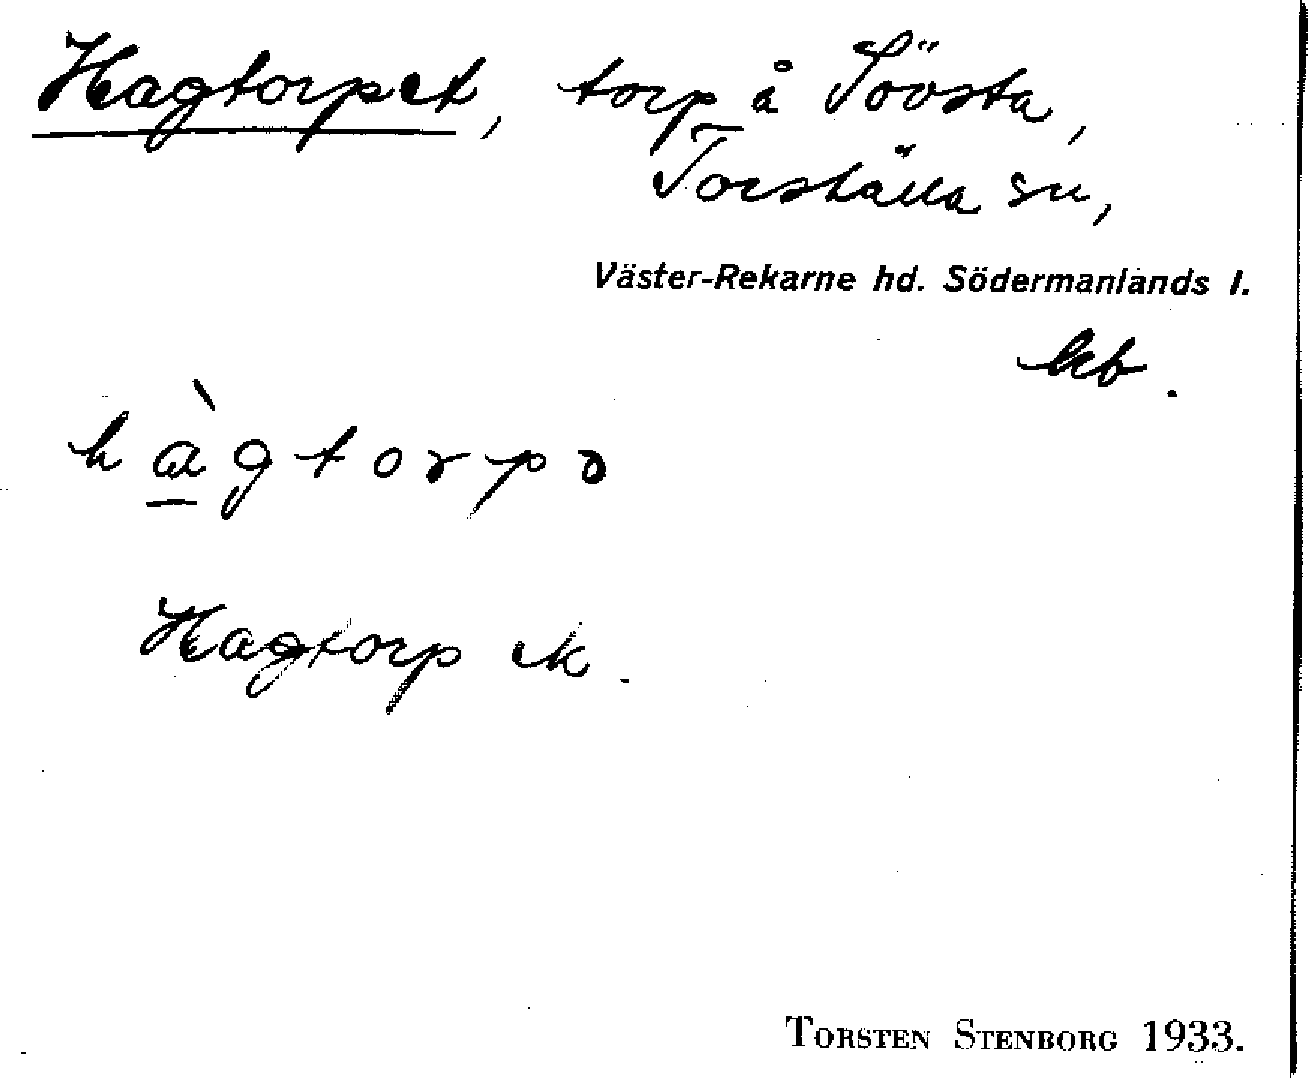 Hagtorpet, torp å Tövsta,
Torshälla sn,
Väster-Rekarne hd. Södermanlands l.
kb.
hàgtorpə
Hagtorp ek.
TORSTEN STENBORG 1933.